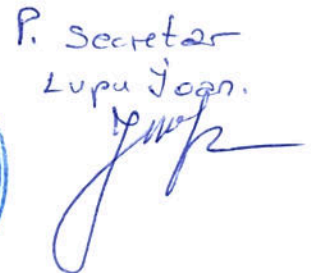 P. Secretar
Lupu Ioan.